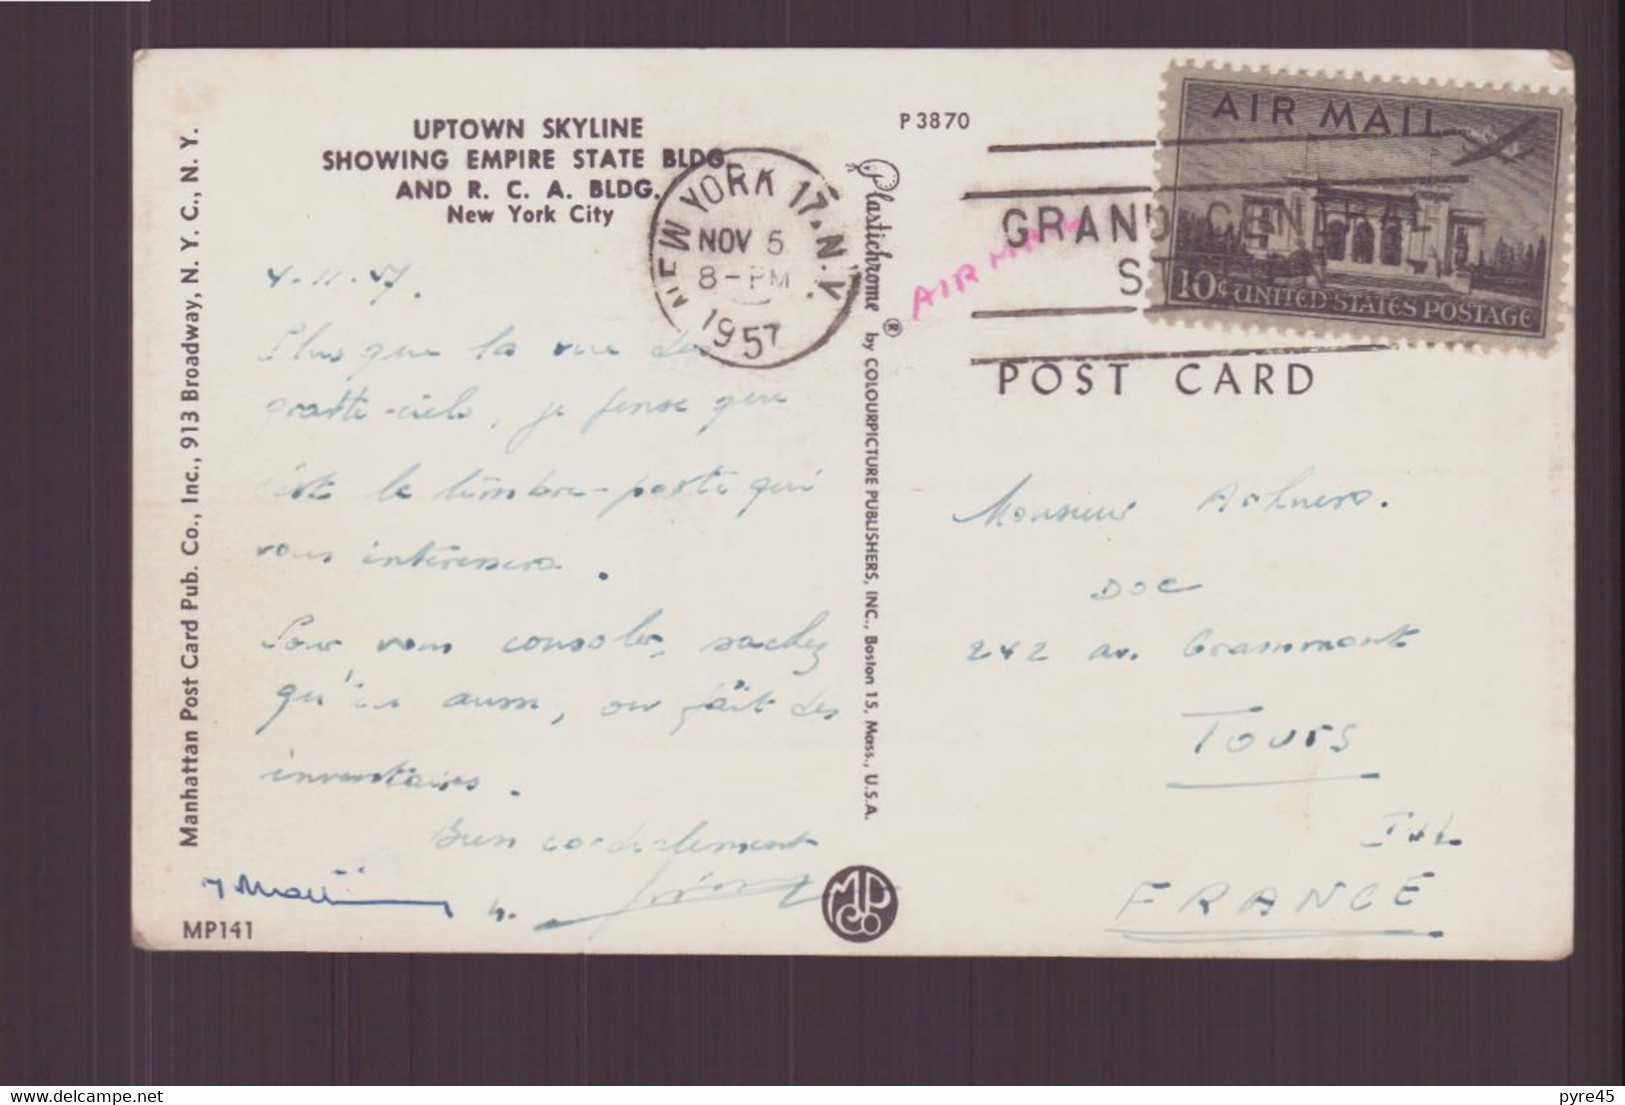 UPTOWN SKYLINE
SHOWING EMPIRE STATE BLDG.
AND R. C. A. BLDG.
New York City
P3870
NEW YORK 17, N.Y.
NOV 5
8-PM
1957
AIR MAIL
GRAND CENTRAL
AIR MAIL
10¢ UNITED STATES POSTAGE
POST CARD
Manhattan Post Card Pub. Co., Inc., 913 Broadway, N. Y. C., N. Y.
Plastichrome ® by COLOURPICTURE PUBLISHERS, INC., Boston 15, Mass., U.S.A.
4-11-57.
Plus que la vue des
gratte-ciels, je pense que
c'est le timbre-poste qui
vous intéressera.
Pour vous consoler, sachez
qu'ici aussi, on fait des
inventaires.
Bien cordialement
Monsieur
DOC
242 av. Grammont
TOURS
I & L
FRANCE
MP Co
MP141
delcampe.net
pyre45